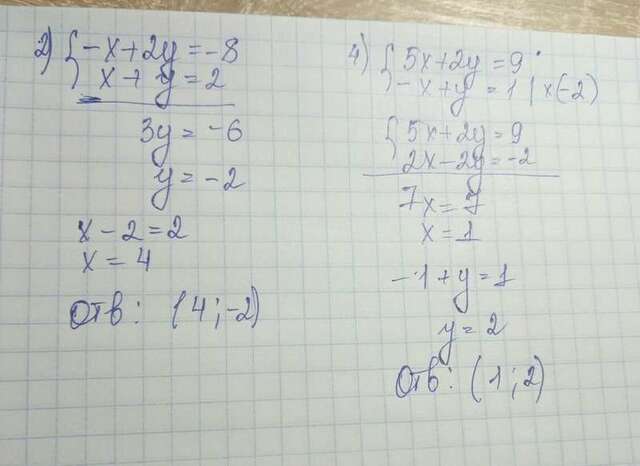 2) { -x+2y=-8
x+y=2
3y=-6
y=-2
x-2=2
x=4
Отв: (4;-2)
4) { 5x+2y=9
-x+y=1 | x(-2)
{ 5x+2y=9
2x-2y=-2
7x=7
x=1
-1+y=1
y=2
Отв: (1;2)